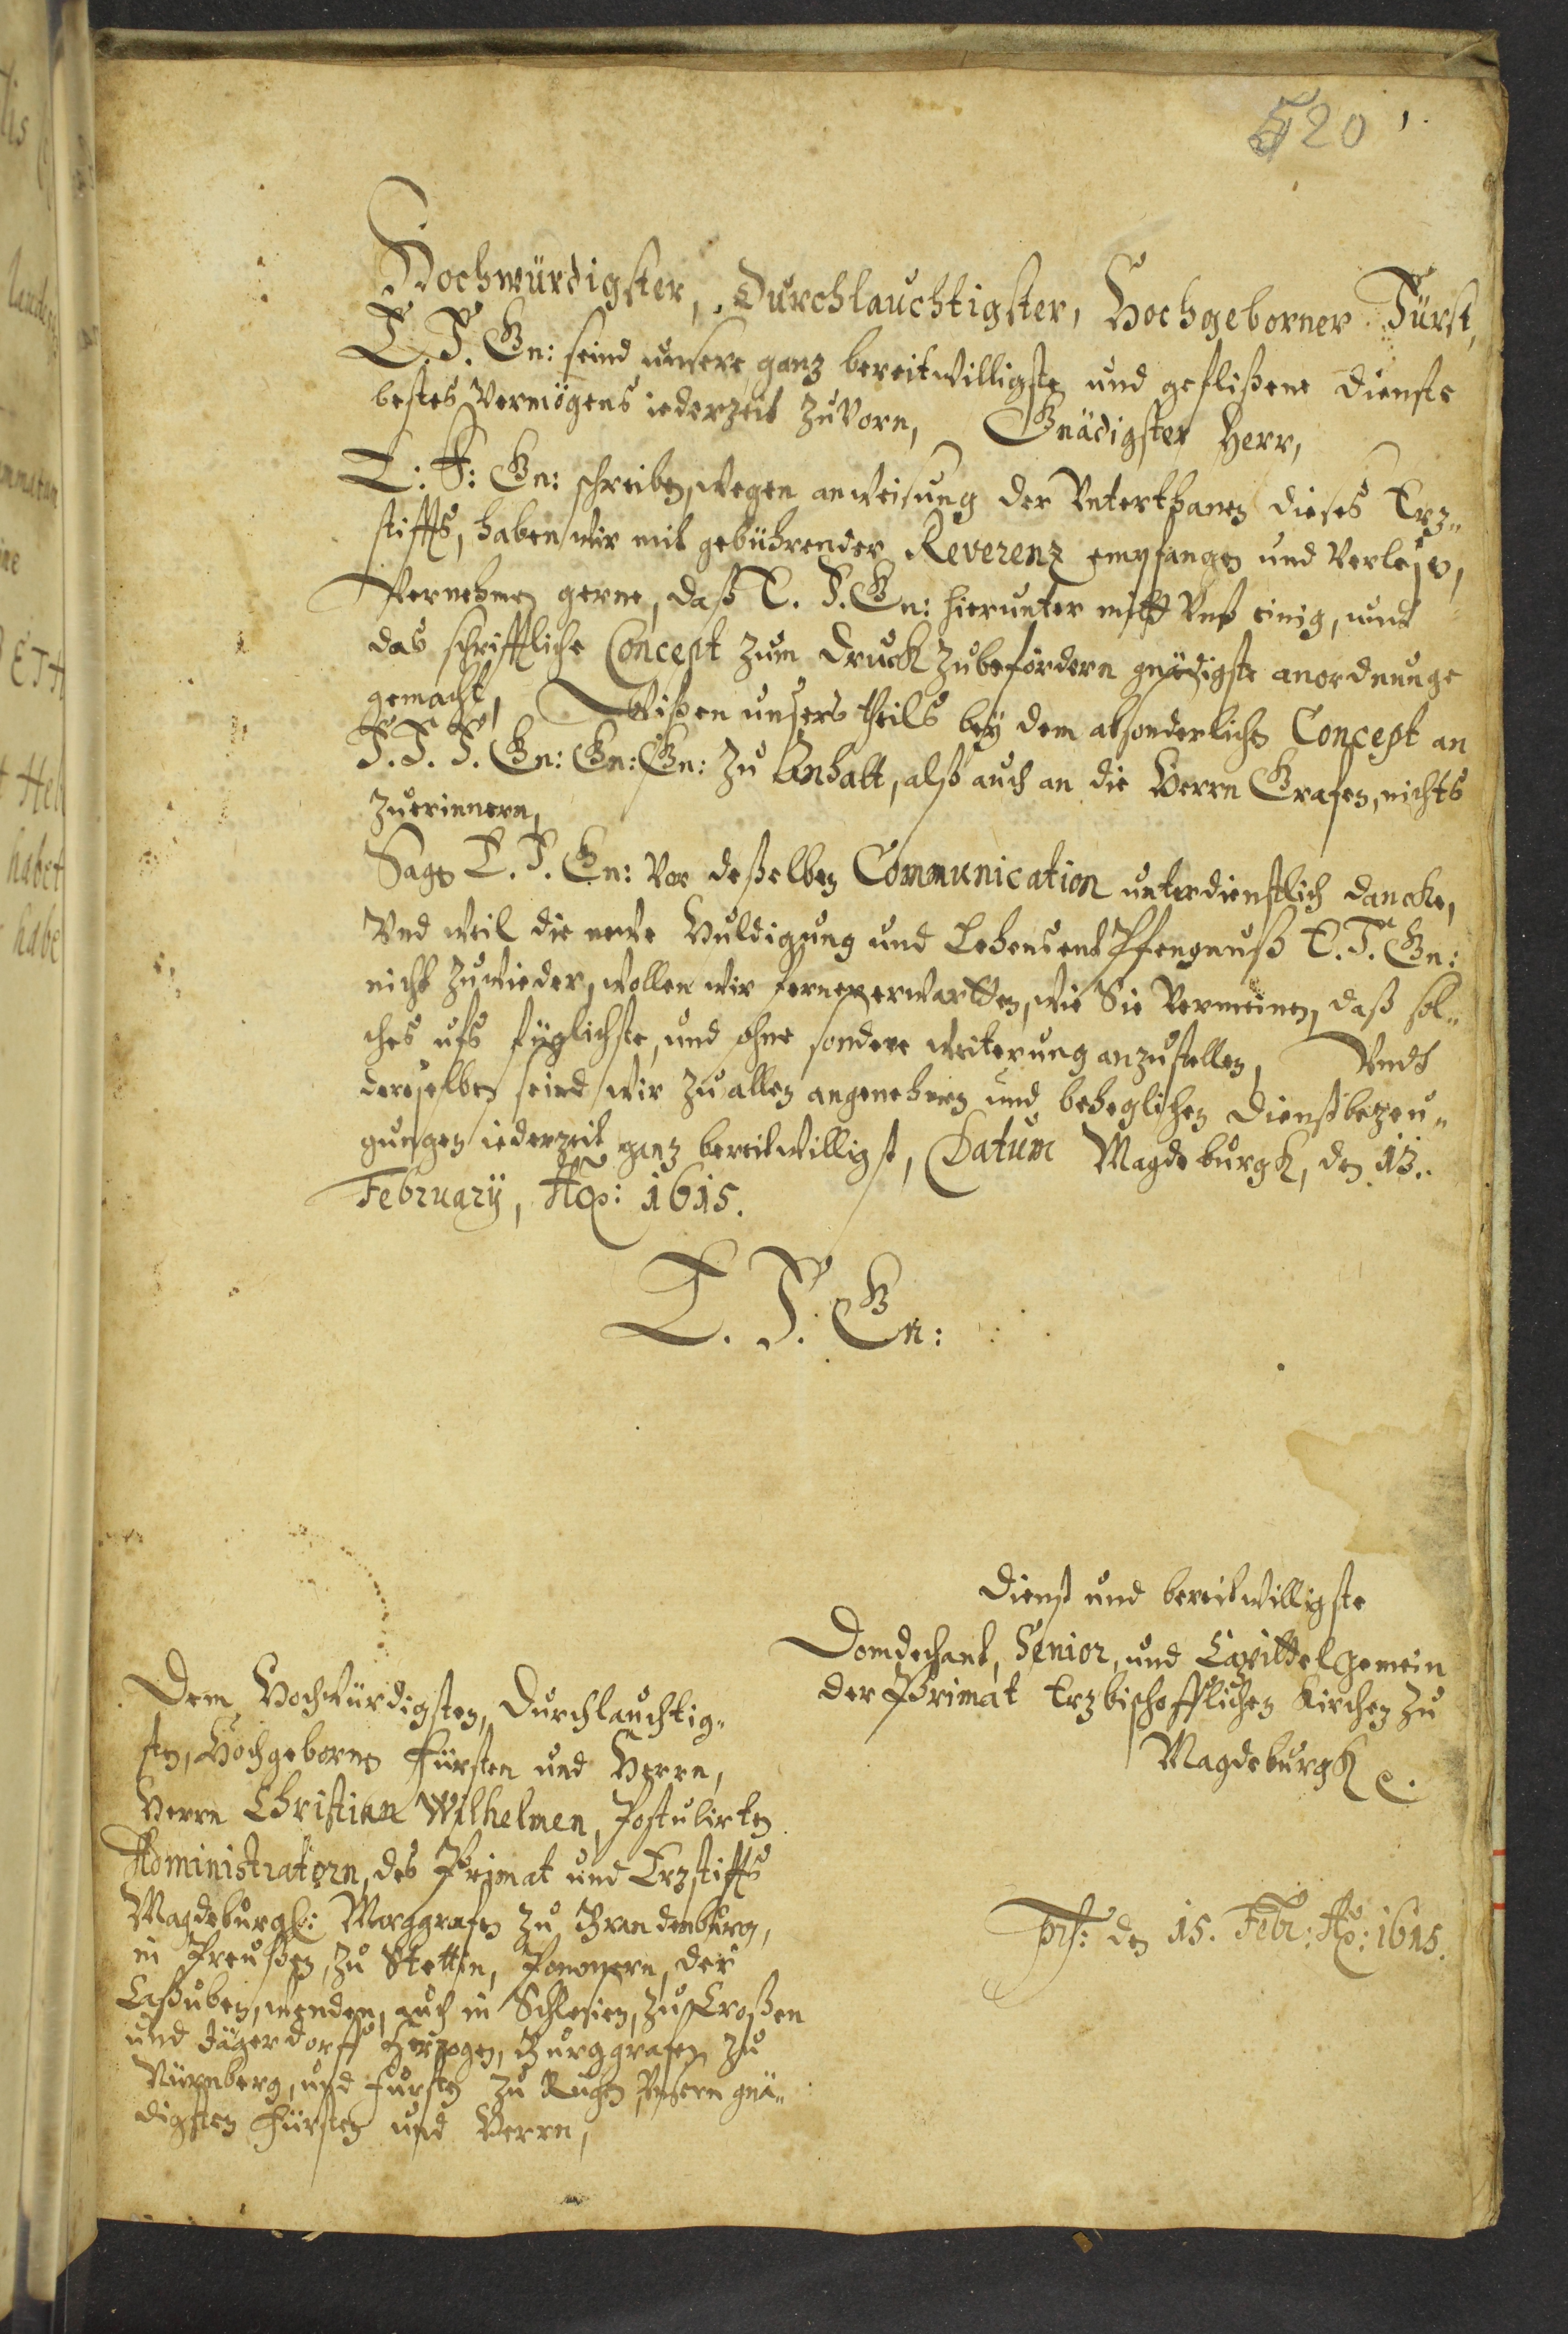 520
Hochwürdigster, Durchlauchtigster, Hochgeborner Fürst,
E. F. Gn: seind unsere ganz bereitwilligste und geflißene dienste
bestes Vermögens iederzeit zuvorn, Gnädigster Herr,
E. F: Gn: schreiben, wegen anweisung der Vnterthanen dieses Erz„
stiffts, haben wir mit gebührender Reverenz empfangen und verlesen,
Vernehmen gerne, daß E. F. Gn: hierunter mitt Vnß einig, und
das schrifftliche Concept zum druck zubefördern gnädigste anordnunge
gemacht, Wißen unsers theils bey dem absonderlichen Concept an
F. F. F. Gn: Gn: Gn: zu Anhalt, alß auch an die Herrn Grafen, nichts
zuerinnern,
Sagen E. F. Gn: vor deßelben Communication unterdienstlich dancke,
Vnd weil die newe Huldigung und Lehensentpfengnuß E. F. Gn:
nicht zuwieder, wollen wir ferner erwartten, wie Sie vermeinen, daß sol„
ches ufs füglichste, und ohne sondere weiterung anzustellen, Vndt
deroselben seind wir zu allen angenehmen und beheglichen dienstbezeu„
gungen iederzeit ganz bereitwilligst, Datum Magdeburgk, den 13..
February, Ao: 1615.
E. F. Gn:
Dienst und bereitwilligste
Domdechant, Senior, und Capittel gemein
der Primat Erzbischofflichen Kirchen zu
Magdeburgk
Dem Hochwürdigsten, Durchlauchtig„
sten, Hochgebornen Fürsten und Herrn,
Herrn Christian Wilhelmen, Postulirten
Administratorn, des Primat und Erzstiffts
Magdeburgk: Marggrafen zu Brandenburg,
in Preußen, zu Stettin, Pommern, der
Caßuben, wenden, auch in Schlesien, zu Croßen
und Jägerdorff Herzogen, Burggrafen zu
Nürnberg, und fursten zu Rugen Vnsern gnä„
digsten Fürsten und Herrn,
prs: den 15. Febr: Ao: 1615.